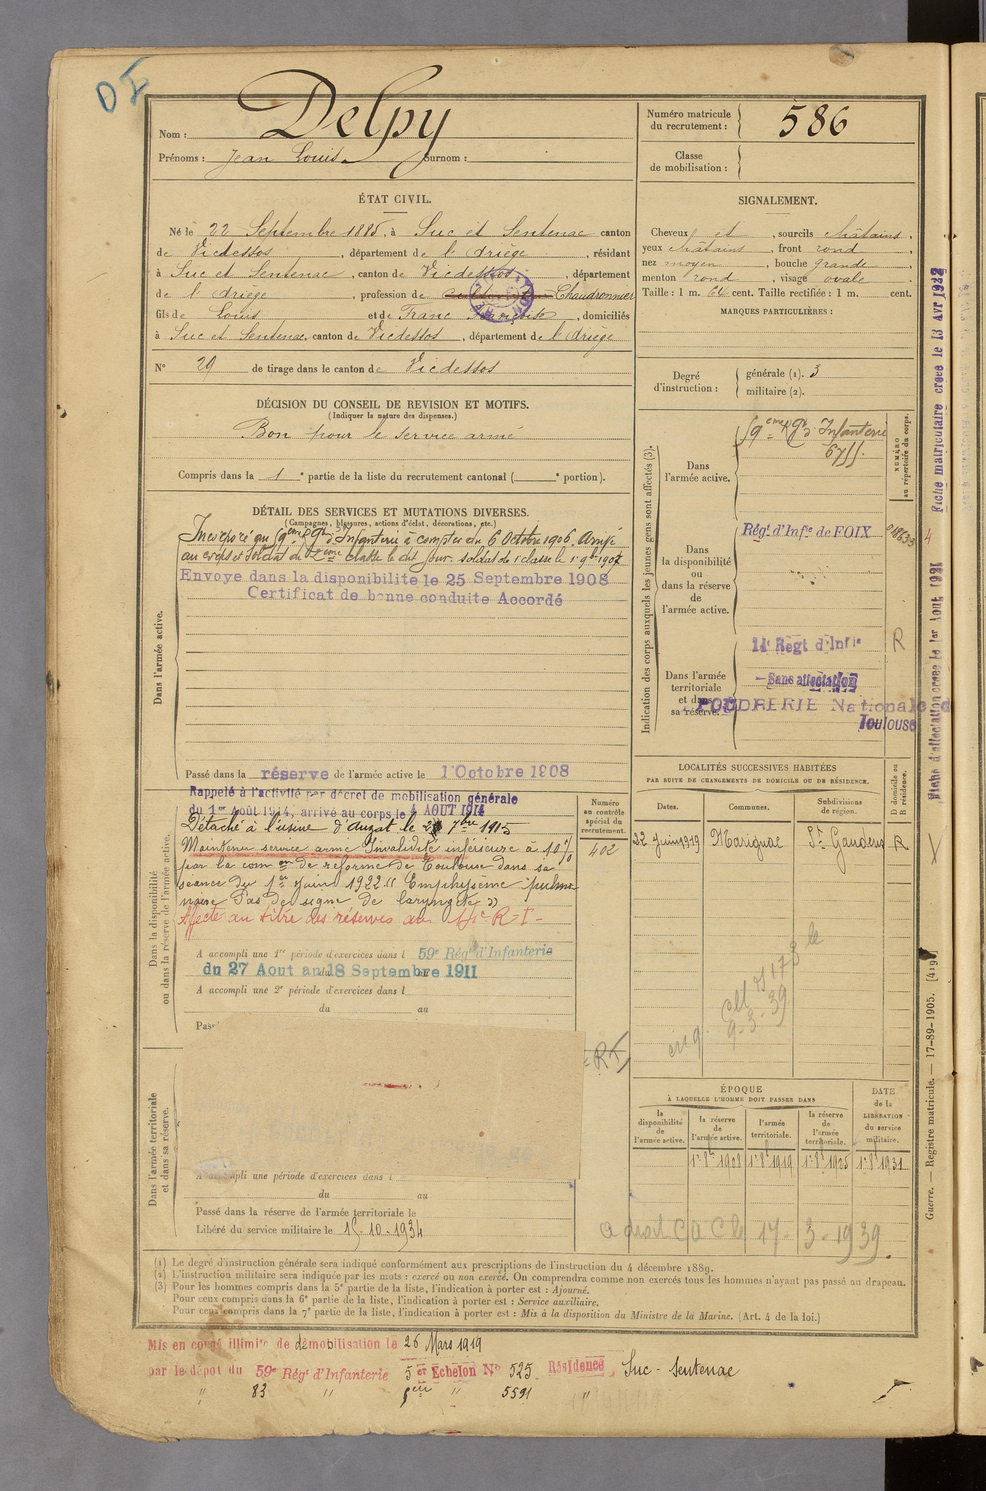 DF
Nom : Delpy
Prénoms : Jean Louis Surnom :
Numéro matricule du recrutement : 586
Classe de mobilisation :
ÉTAT CIVIL.
Né le 22 Septembre 1885, à Suc et Sentenac canton
de Vicdessos, département de l'Ariège, résidant
à Suc et Sentenac, canton de Vicdessos, département
de l'Ariège, profession de Chaudronnier
fils de Louis et de Franc , domiciliés
à Suc et Sentenac, canton de Vicdessos, département de l'Ariège
N° 29 de tirage dans le canton de Vicdessos
SIGNALEMENT.
Cheveux et , sourcils châtains,
yeux châtains, front rond
nez moyen, bouche grande
menton rond, visage ovale
Taille : 1 m. 64 cent. Taille rectifiée : 1 m. cent.
MARQUES PARTICULIÈRES :
Degré d'instruction : générale (1). 3
militaire (2).
DÉCISION DU CONSEIL DE REVISION ET MOTIFS.
(Indiquer la nature des dispenses.)
Bon pour le service armé
Compris dans la 1e partie de la liste du recrutement cantonal ( e portion).
DÉTAIL DES SERVICES ET MUTATIONS DIVERSES.
(Campagnes, blessures, actions d'éclat, décorations, etc.)
Dans l'armée active.
Incorporé au 59ème Rgt d'Infanterie à compter du 6 Octobre 1906. Arrivé
au corps et soldat de 2ème classe le dit jour. soldat de 1e classe le 1er 9bre 1907
Envoye dans la disponibilite le 25 Septembre 1908
Certificat de bonne conduite Accordé
Passé dans la réserve de l'armée active le 1 Octobre 1908
Dans la disponibilité ou dans la réserve de l'armée active.
Rappelé à l'activité par décret de mobilisation générale
du 1er Août 1914, arrivé au corps le 4 AOUT 1914
Détaché à l'usine d'Auzat le 7bre 1915
Maintenu service armé Invalidité inférieure à 10%
par la comon de réforme de Toulouse dans sa
séance du 1er Juin 1922 "Emphysème pulmo
naire Pas de signe de laryngite"
Affecté au titre des réserves au R-I-
A accompli une 1re période d'exercices dans l 59e Régt d'Infanterie
du 27 Aout au 18 Septembre 1911
A accompli une 2e période d'exercices dans l
du au
Passé
Numéro au contrôle spécial du recrutement.
402
Dans l'armée territoriale et dans sa réserve.
A accompli une période d'exercices dans l
du au
Passé dans la réserve de l'armée territoriale le
Libéré du service militaire le 15-10-1934
Indication des corps auxquels les jeunes gens sont affectés (3).
NUMÉRO au répertoire du corps.
Dans l'armée active.
59ème Rgt d'Infanterie
67
Dans la disponibilité ou dans la réserve de l'armée active.
Régt d'Infie de FOIX
Dans l'armée territoriale et dans sa réserve.
14e Regt d'Infie
R
Sans affectation
POUDRERIE Nationale d
Toulouse
LOCALITÉS SUCCESSIVES HABITÉES
PAR SUITE DE CHANGEMENTS DE DOMICILE OU DE RÉSIDENCE.
D domicile ou R résidence.
Dates. Communes. Subdivisions de région.
22 Juin 1919 Marignac St Gaudens R
9-3-39
ÉPOQUE
À LAQUELLE L'HOMME DOIT PASSER DANS
la disponibilité de l'armée active.
la réserve de l'armée active.
l'armée territoriale.
la réserve de l'armée territoriale.
DATE de la LIBÉRATION du service militaire.
1er 8bre 1908 1er 8bre 1919 1er 8bre 1925 1er 8bre 1931
a droit C a C le 17-3-1939.
(1) Le degré d'instruction générale sera indiqué conformément aux prescriptions de l'instruction du 4 décembre 1889.
(2) L'instruction militaire sera indiquée par les mots : exercé ou non exercé. On comprendra comme non exercés tous les hommes n'ayant pas passé au drapeau.
(3) Pour les hommes compris dans la 5e partie de la liste, l'indication à porter est : Ajourné.
Pour ceux compris dans la 6e partie de la liste, l'indication à porter est : Service auxiliaire.
Pour ceux compris dans la 7e partie de la liste, l'indication à porter est : Mis à la disposition du Ministre de la Marine. (Art. 4 de la loi.)
Mis en congé illimité de démobilisation le 26 Mars 1919
par le dépot du 59e Régt d'Infanterie 5 er Echelon No 525 Résidence Suc-Sentenac
" 83 " " 5591 "
Fiche matriculaire créée le 13 Avr 1922
Fiche d'affectation créée le 1er Aout 1931
Guerre. — Registre matricule. — 17-89-1905. [419]